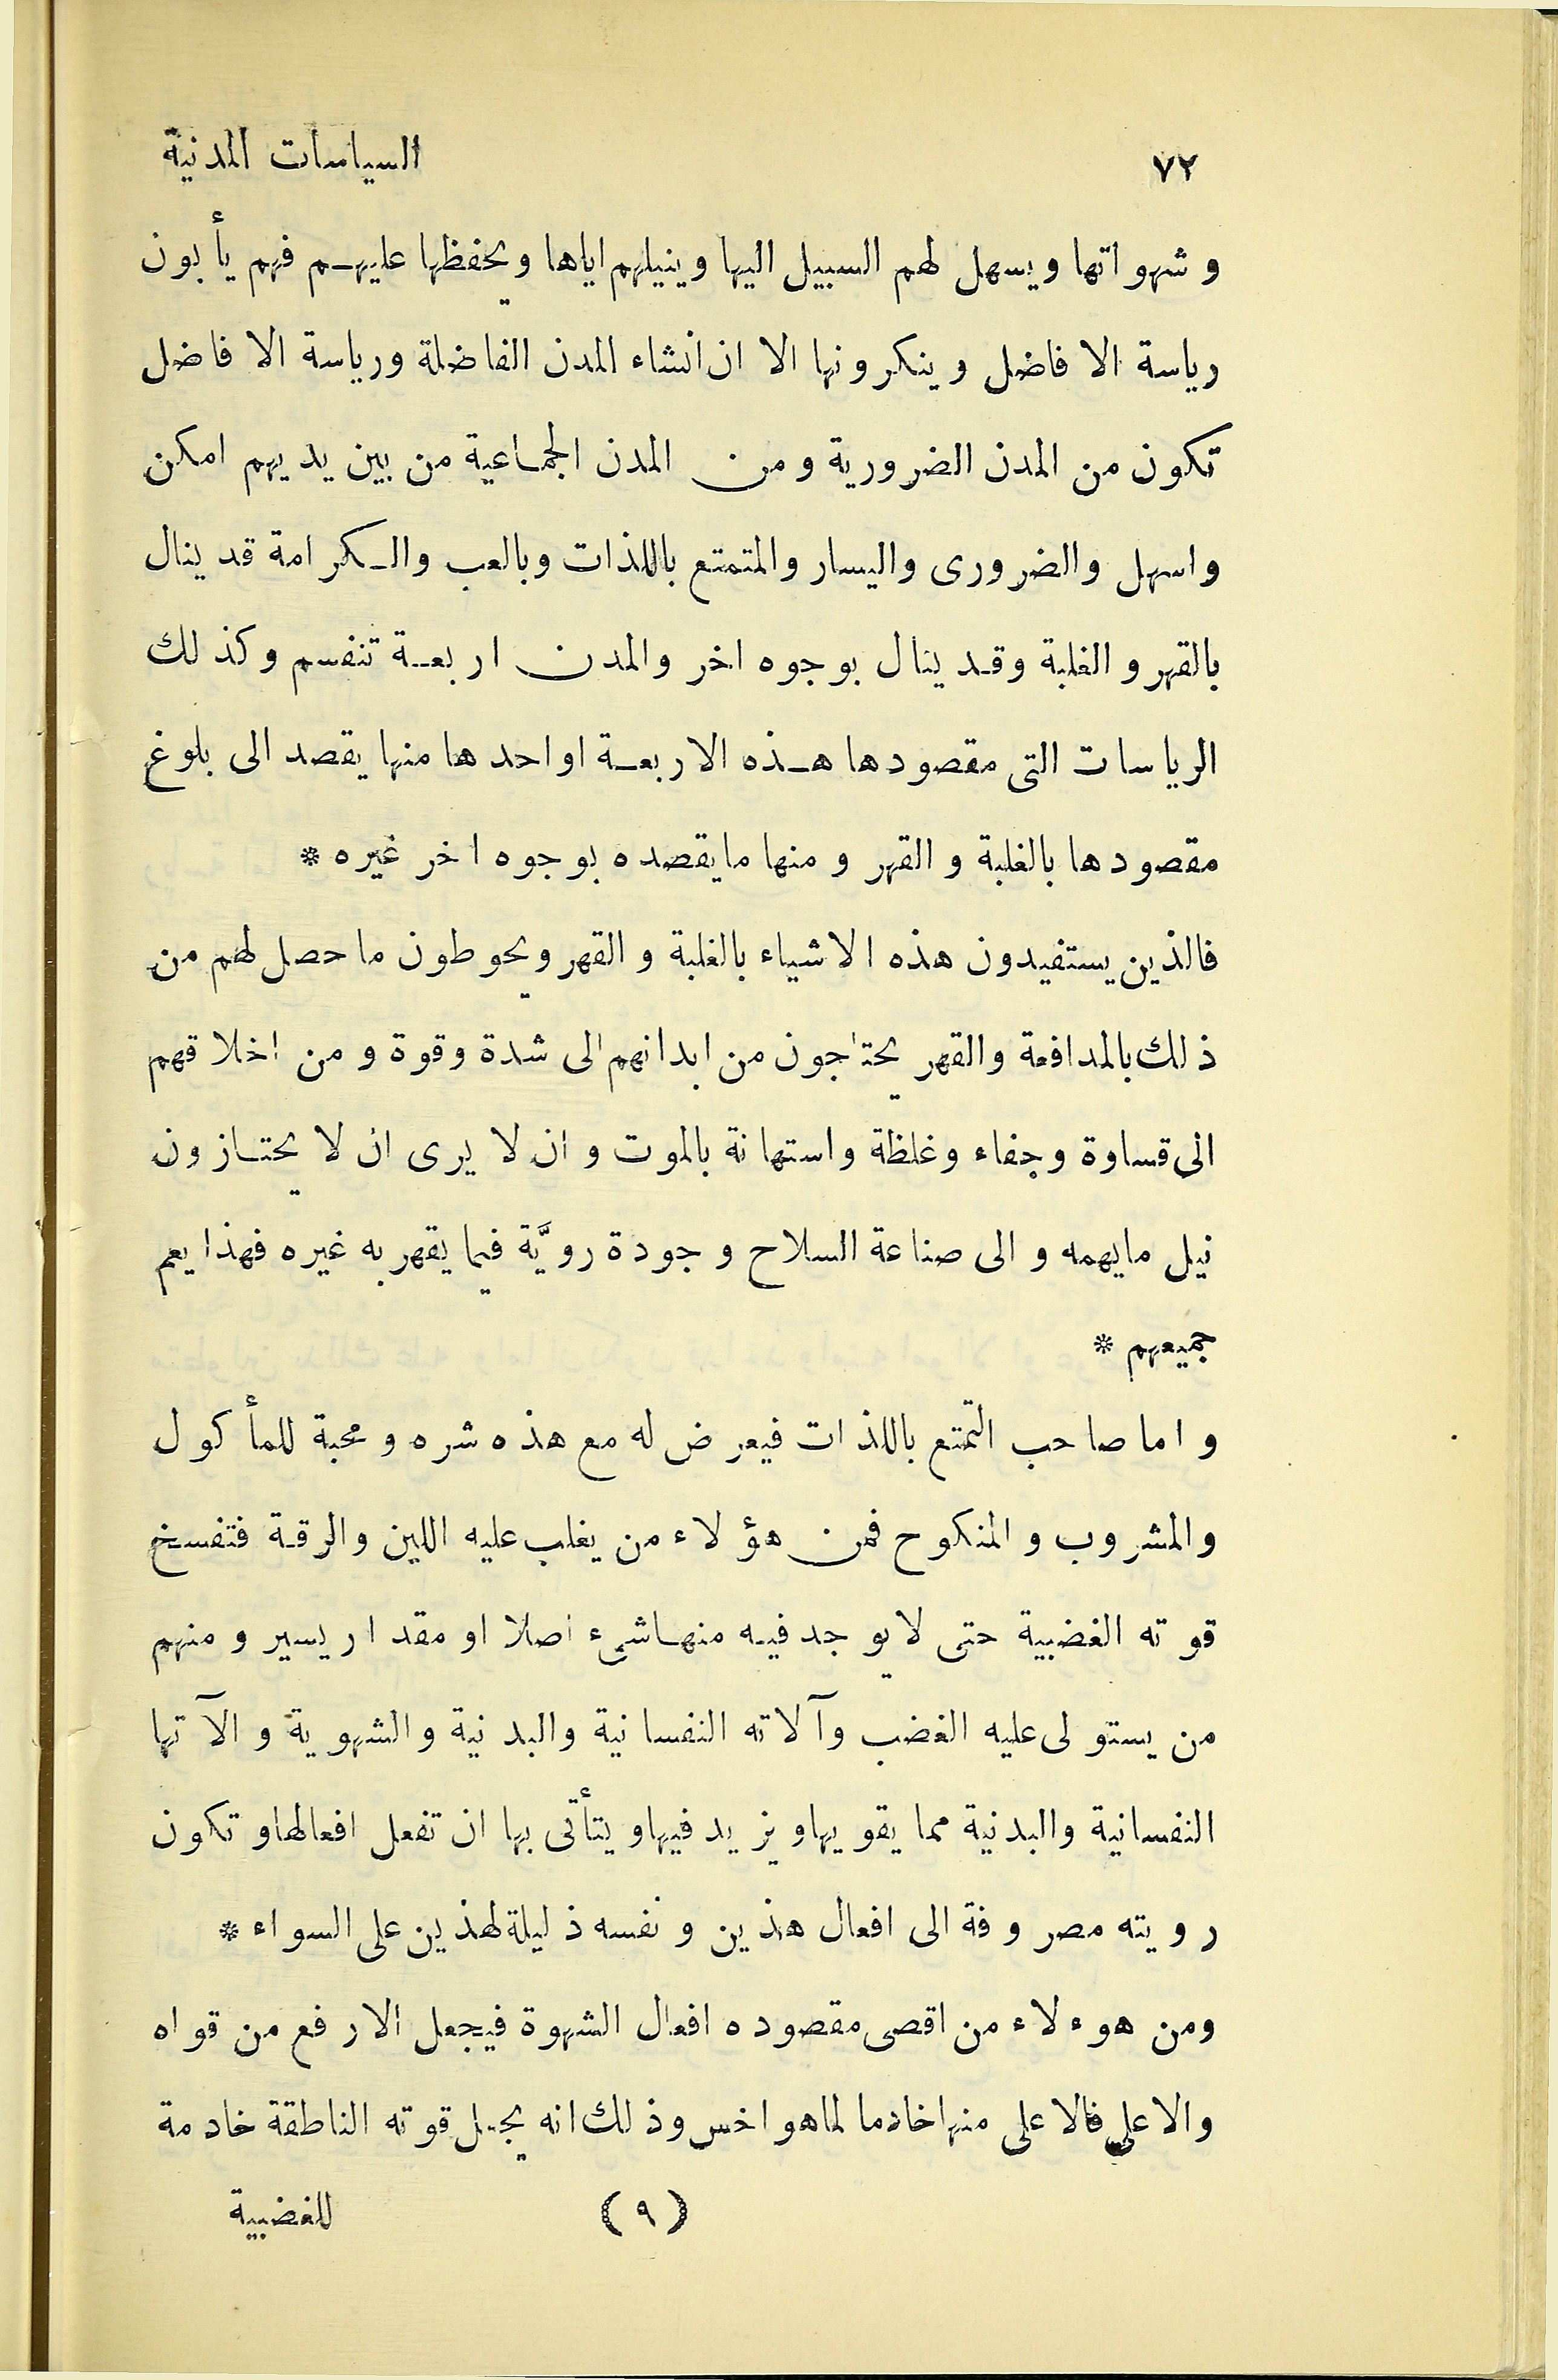 ٧٢ السياسات المدنية
وشهواتها ويسهل لهم السبيل اليها وينيلهم اياها ويحفظها عليهم فهم يأبون
رياسة الافاضل وينكرونها الا ان انشاء المدن الفاضلة ورياسة الافاضل
تكون من المدن الضرورية ومن المدن الجماعية من بين يديهم امكن
واسهل والضرورى واليسار والمتمتع باللذات وبالعب والكرامة قد ينال
بالقهر والغلبة وقد ينال بوجوه اخر والمدن اربعة تنفسم وكذلك
الرياسات التى مقصودها هذه الاربعة او احدها منها يقصد الى بلوغ
مقصودها بالغلبة والقهر ومنها مايقصده بوجوه اخر غيره *
فالذين يستفيدون هذه الاشياء بالغلبة والقهر ويحوطون ما حصل لهم من
ذلك بالمدافعة والقهر يحتاجون من ابدانهم الى شدة وقوة ومن اخلاقهم
الى قساوة وجفاء وغلظة واستهانة بالموت وان لا يرى ان لا يحتازون
نيل مايهمه والى صناعة السلاح وجودة رويَّة فيما يقهر به غيره فهذا يعم
جميعهم *
واما صاحب التمتع باللذات فيعرض له مع هذه شره ومحبة للمأكول
والمشروب والمنكوح فمن هؤلاء من يغلب عليه اللين والرقة فتفسخ
قوته الغضبية حتى لايوجد فيه منها شىء اصلا او مقدار يسير ومنهم
من يستولى عليه الغضب وآلاته النفسانية والبدنية والشهوية والآتها
النفسانية والبدنية مما يقويها ويزيد فيها ويتأتى بها ان تفعل افعالها وتكون
رويته مصروفة الى افعال هذين ونفسه ذليلة لهذين على السواء *
ومن هوءلاء من اقصى مقصوده افعال الشهوة فيجعل الارفع من قواه
والاعلى فالاعلى منها خادما لماهو اخس وذلك انه يجعل قوته الناطقة خادمة
(٩) للغضبية